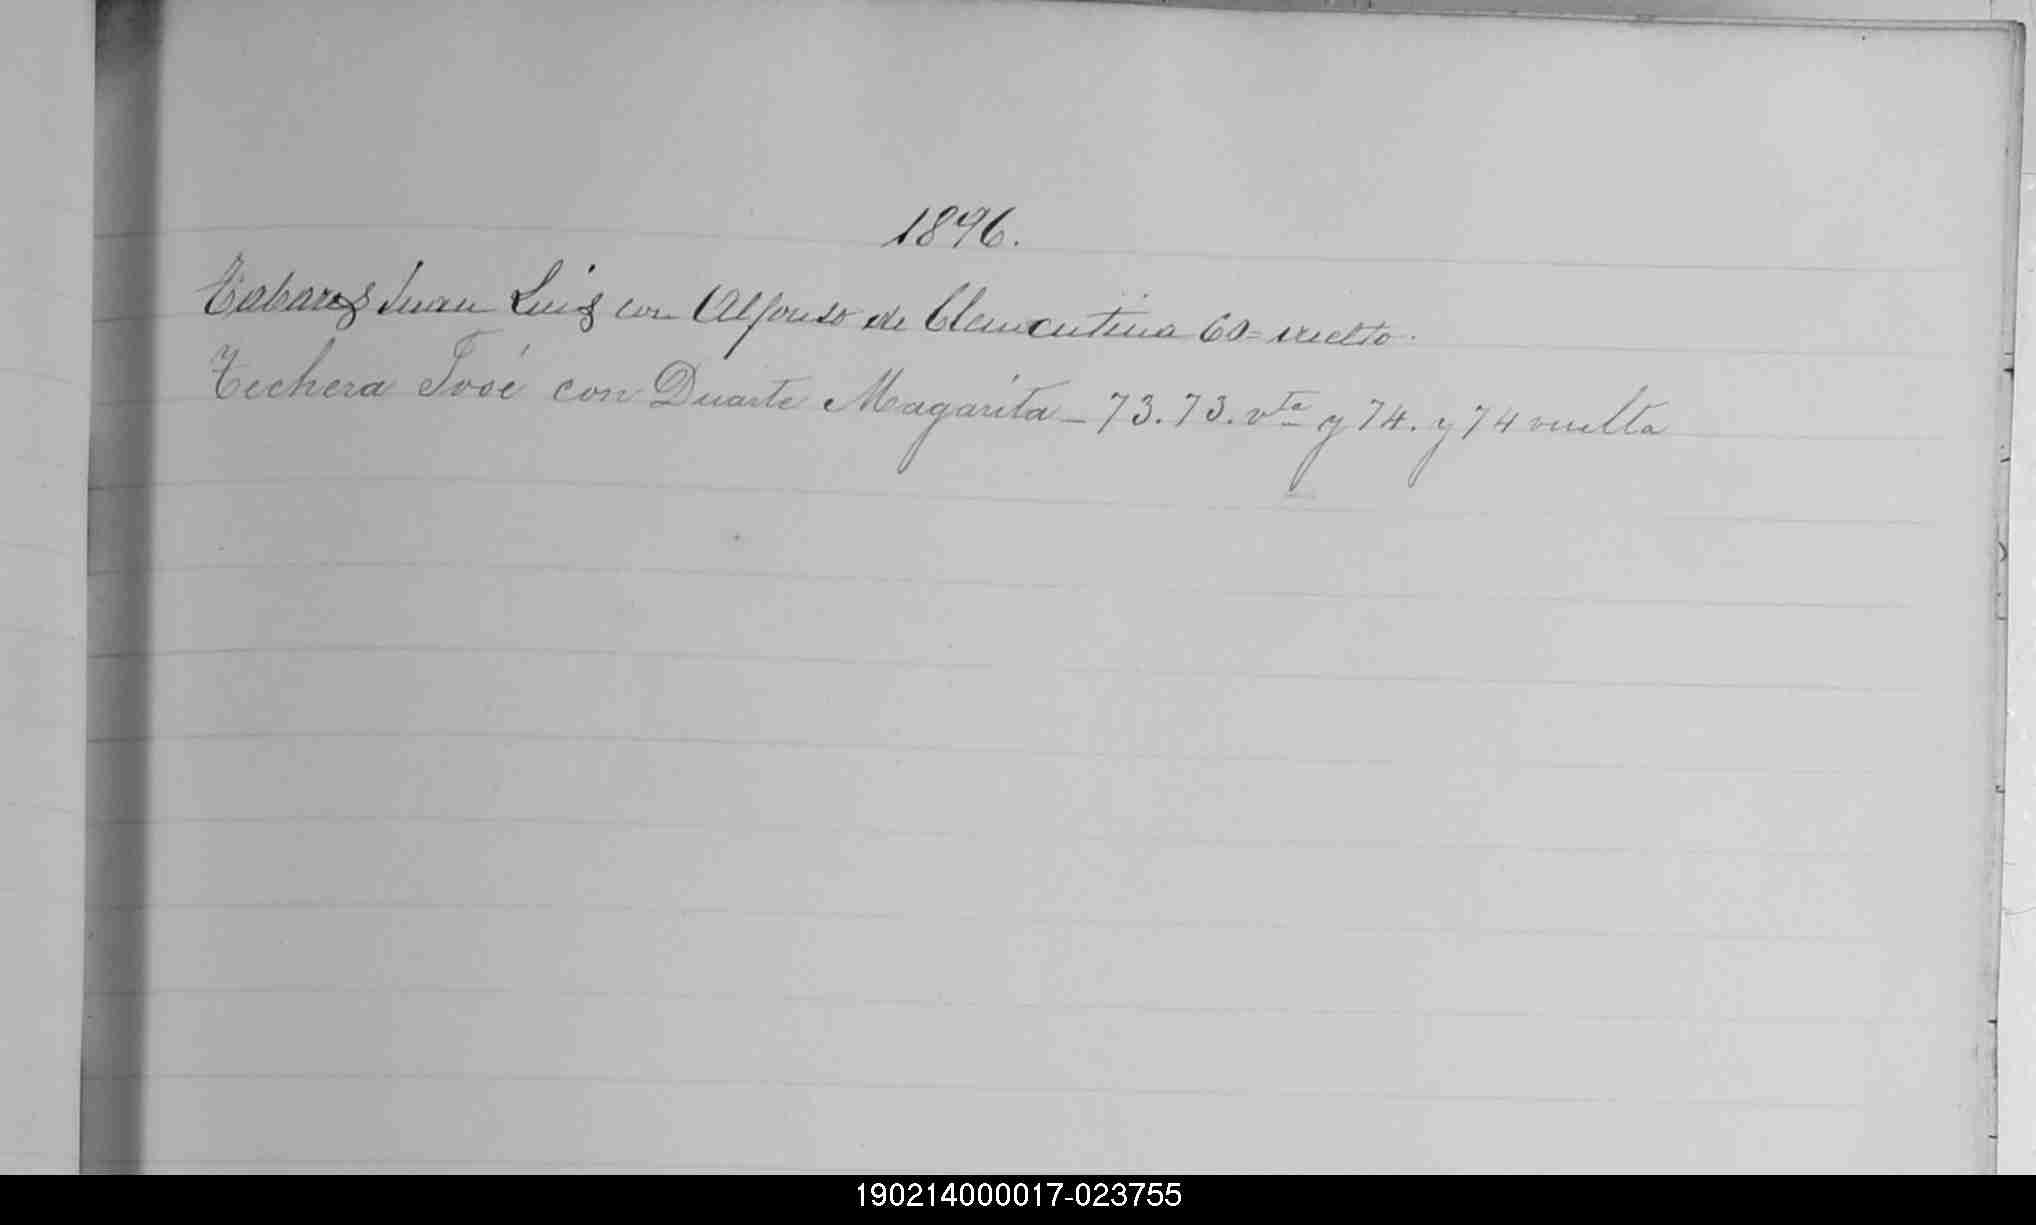 1896.
Tabares Juan Luis con Alfonso de Clementina 60 = vuelto.
Techera José con Duarte Magarita - 73. 73. vta y 74. y 74 vuelta
190214000017-023755